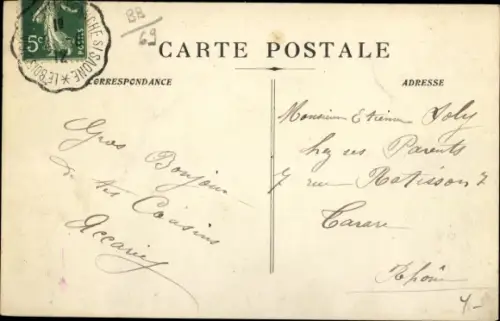 88
69
5c
POSTES
CARTE POSTALE
CORRESPONDANCE
ADRESSE
Gros Bonjour
de tes Cousins
Accarie
Monsieur Etienne Joly
chez ses Parents
7 rue Ratisson 7
Tarare
Rhône
4.-